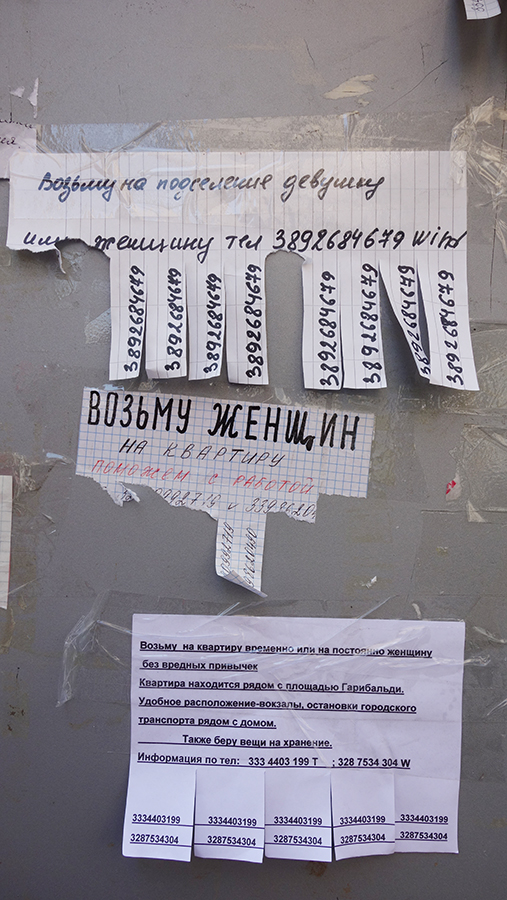 Возьму на подселение девушку
или женщину тел 3892684679 Wind
3892684679
3892684679
3892684679
3892684679
3892684679
3892684679
3892684679
3892684679
ВОЗЬМУ ЖЕНЩИН
НА КВАРТИРУ
ПОМОЖЕМ С РАБОТОЙ
Возьму на квартиру временно или на постоянно женщину
без вредных привычек
Квартира находится рядом с площадью Гарибальди.
Удобное расположение-вокзалы, остановки городского
транспорта рядом с домом.
Также беру вещи на хранение.
Информация по тел: 333 4403 199 T ; 328 7534 304 W
3334403199 3334403199 3334403199 3334403199 3334403199
3287534304 3287534304 3287534304 3287534304 3287534304